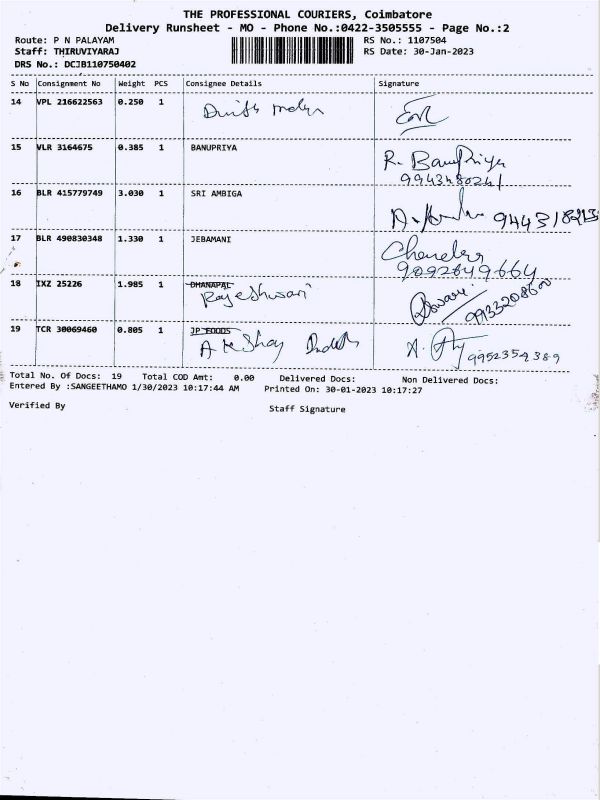 THE PROFESSIONAL COURIERS, Coimbatore
Delivery Runsheet - MO - Phone No.:0422-3505555 - Page No.:2
Route: P N PALAYAM
RS No.: 1107504
Staff: THIRUVIYARAJ
RS Date: 30-Jan-2023
DRS No.: DCJB110750402
S No Consignment No Weight PCS Consignee Details Signature
14 VPL 216622563 0.250 1
15 VLR 3164675 0.385 1 BANUPRIYA R. BanuPriya
9943480241
16 BLR 415779749 3.030 1 SRI AMBIGA
17 BLR 490830348 1.330 1 JEBAMANI
9092649664
18 IXZ 25226 1.985 1 DHANAPAL
Rajeshwari
19 TCR 30069460 0.805 1 JP FOODS
Akshay 9952354389
Total No. Of Docs: 19 Total COD Amt: 0.00 Delivered Docs: Non Delivered Docs:
Entered By :SANGEETHAMO 1/30/2023 10:17:44 AM Printed On: 30-01-2023 10:17:27
Verified By
Staff Signature